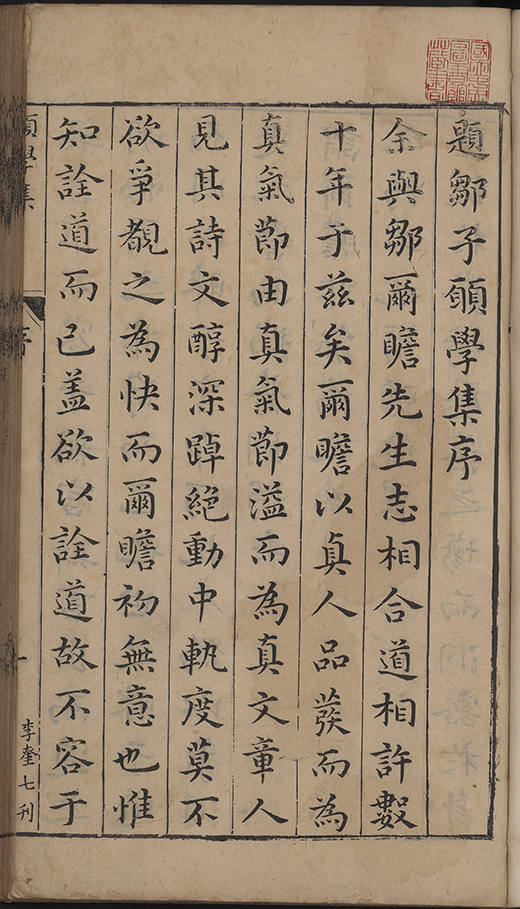 題鄒子願學集序
余與鄒爾瞻先生志相合道相許數
十年于茲矣爾瞻以真人品發而為
真氣節由真氣節溢而為真文章人
見其詩文醇深踔絕動中軌度莫不
欲爭覩之為快而爾瞻初無意也惟
知詮道而已蓋欲以詮道故不容于
願學集
序
一
李奎七刊